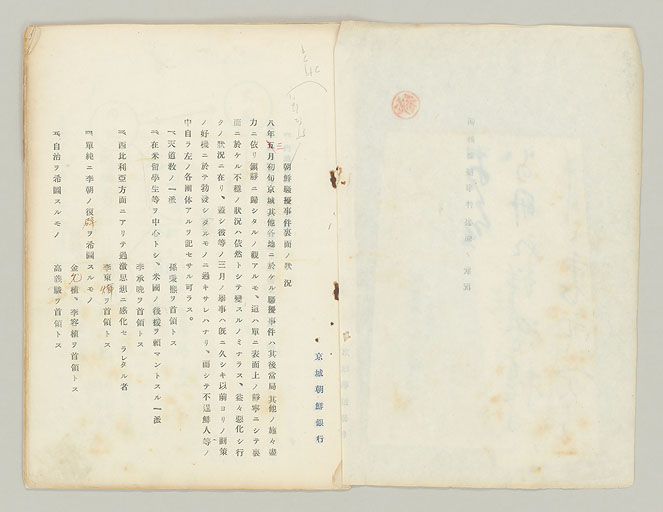 京城朝鮮銀行
朝鮮騷擾事件裏面ノ狀況
八年五月初旬京城其他各地ニ於ケル騷擾事件ハ其後當局其他ノ施々盡
三
力ニ依リ鎭靜ニ歸シタルノ觀アルモ、這ハ單ニ表面上ノ靜寧ニシテ裏
面ニ於ケル不穩ノ狀況ハ依然トシテ變スルノミナラス、益々惡化シ行
クノ狀況ニ在リ、蓋シ彼等ノ三月ノ擧事ハ旣ニ久シキ以前ヨリノ劃策
ノ好機ニ於テ勃發シタルモノニ過キサレハナリ、而シテ不逞鮮人等ノ
中自ラ左ノ各團体アルヲ記セサル可ラス。
一、天道敎ノ一派
孫秉熙ヲ首領トス
一、在米留學生等ヲ中心トシ、米國ノ後援ヲ賴マントスル一派
李承晩ヲ首領トス
一、西比利亞方面ニアリテ過激思想ニ感化セラレタル者
李東輝ヲ首領トス
一、單純ニ李朝ノ復辟ヲ希圖スルモノ
金允植、李容植ヲ首領トス
一、自治ヲ希圖スルモノ
高義駿ヲ首領トス